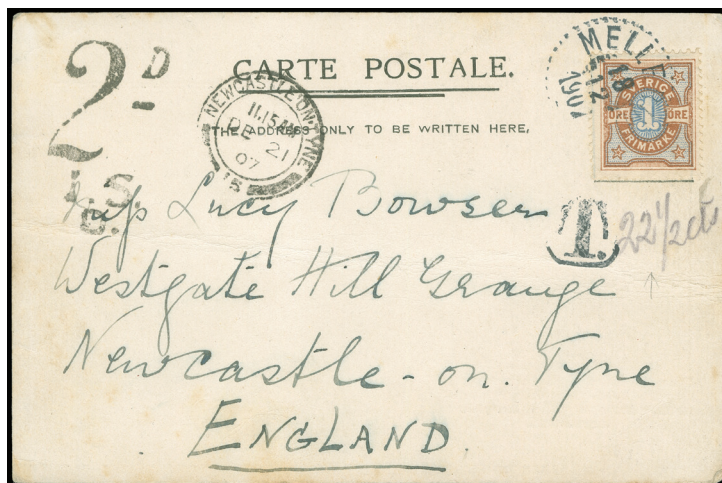 2D
CARTE POSTALE.
THE ADDRESS ONLY TO BE WRITTEN HERE,
NEWCASTLE-ON-TYNE
11.15 AM
DE 21
07
15
18
12
1907
SVERIGE
ÖRE 1 ÖRE
FRIMÄRKE
T.
22 1/2 cts
Lucy Bowser
Westgate Hill Grange
Newcastle-on. Tyne
ENGLAND.